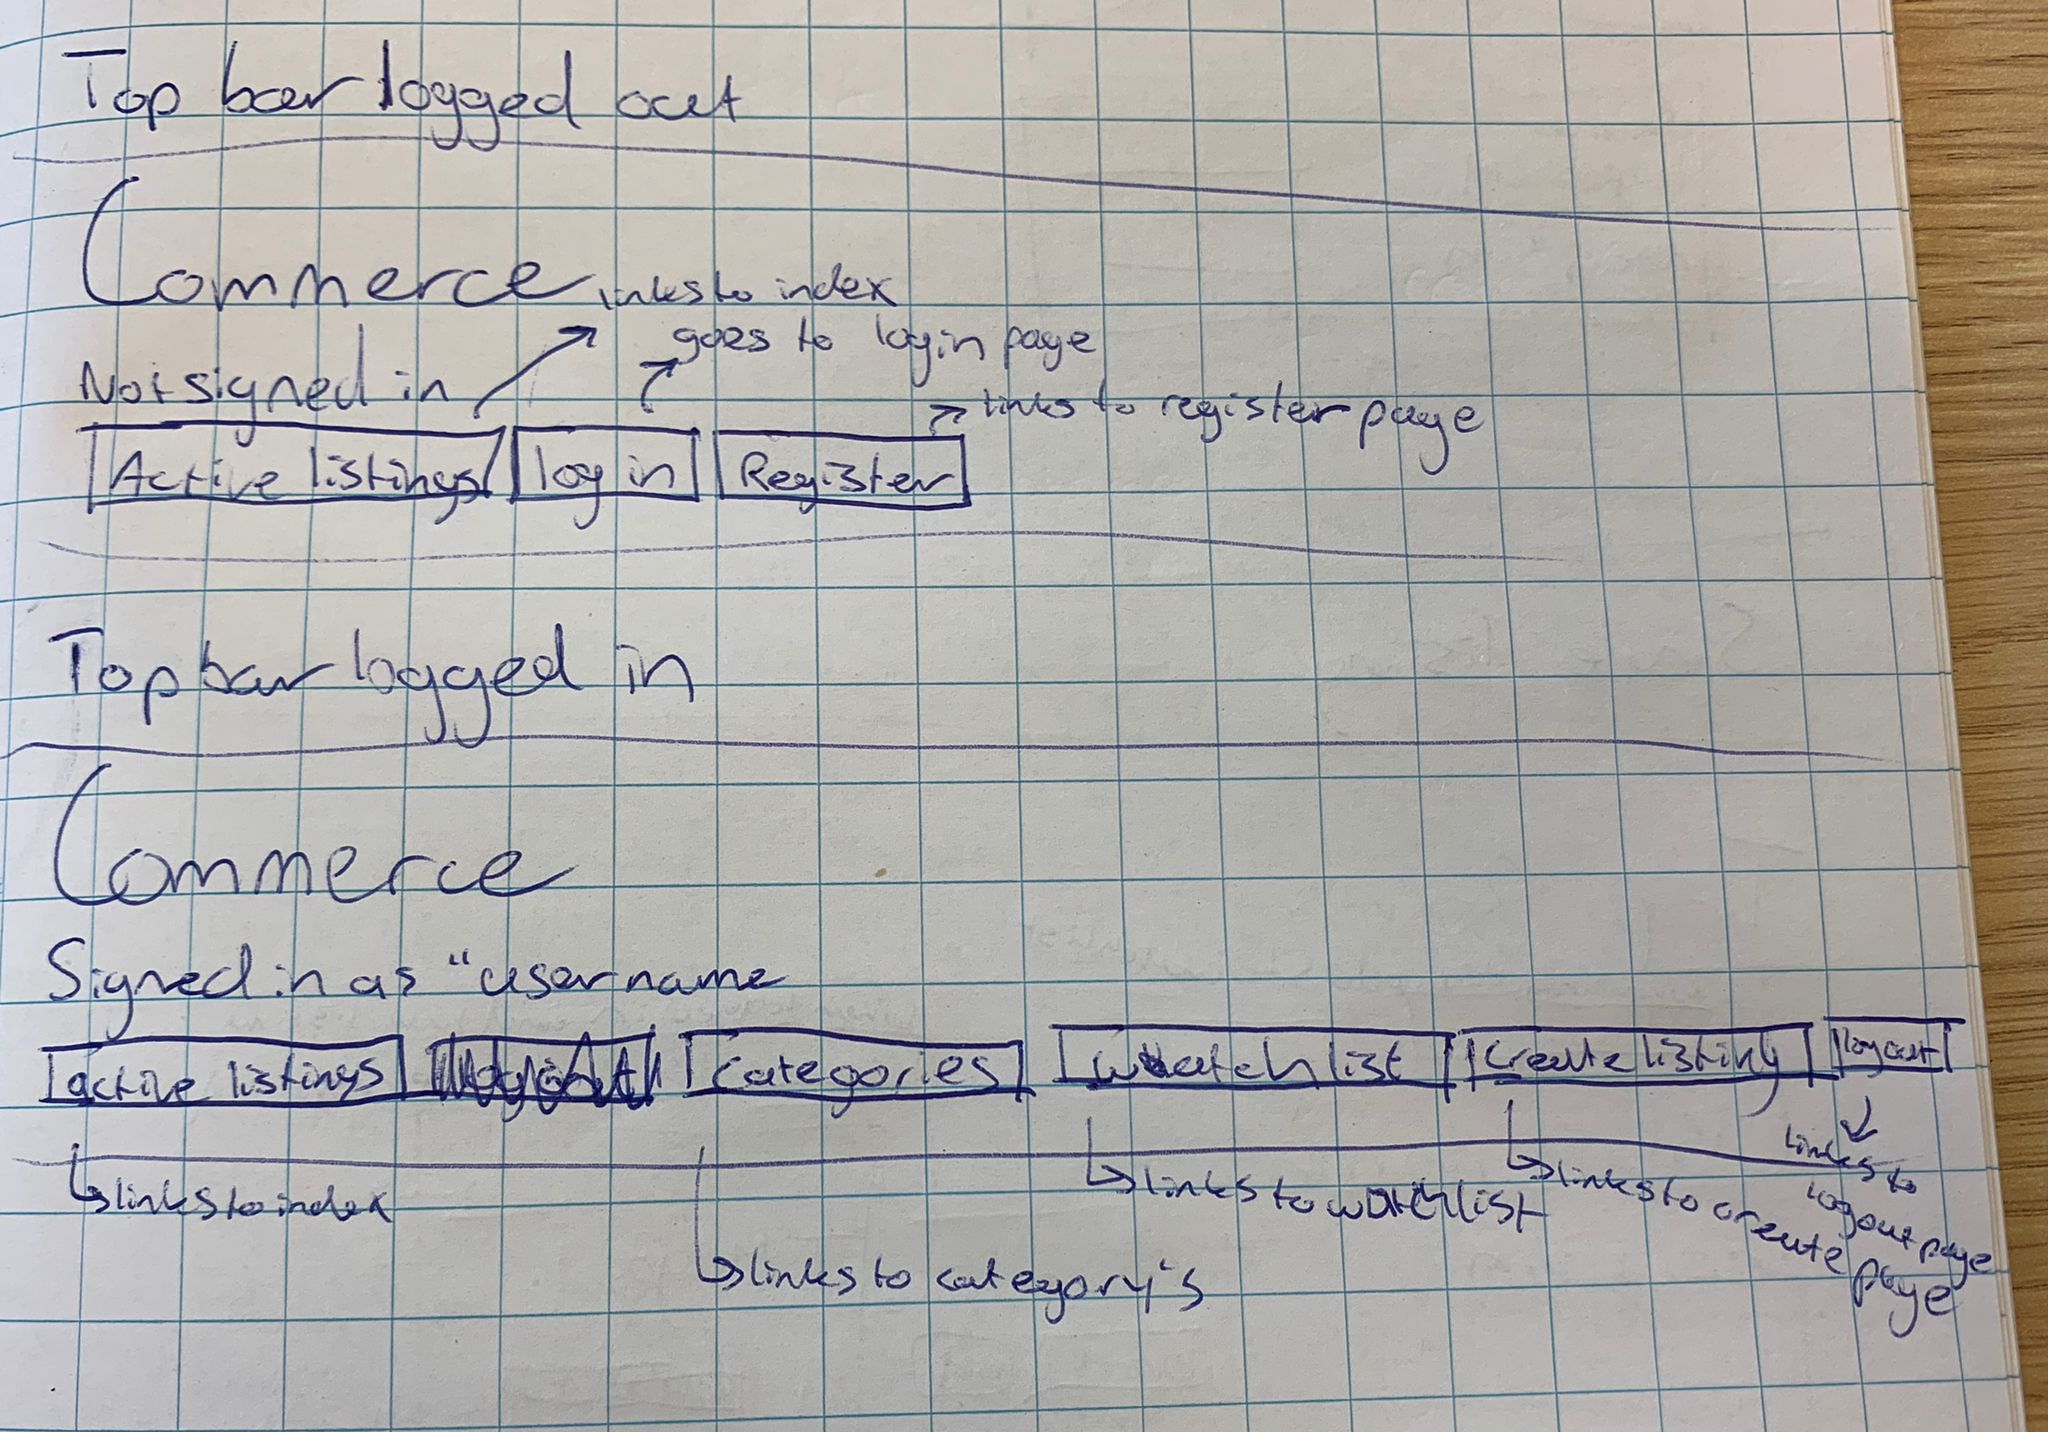 Top bar logged out
Commerce links to index
goes to login page
Not signed in
links to register page
Active listings log in Register
Top bar logged in
Commerce
Signed in as "username
active listings logout categories watch list create listing logout
links to index
links to watchlist
links to create page
links to logout page
links to category's